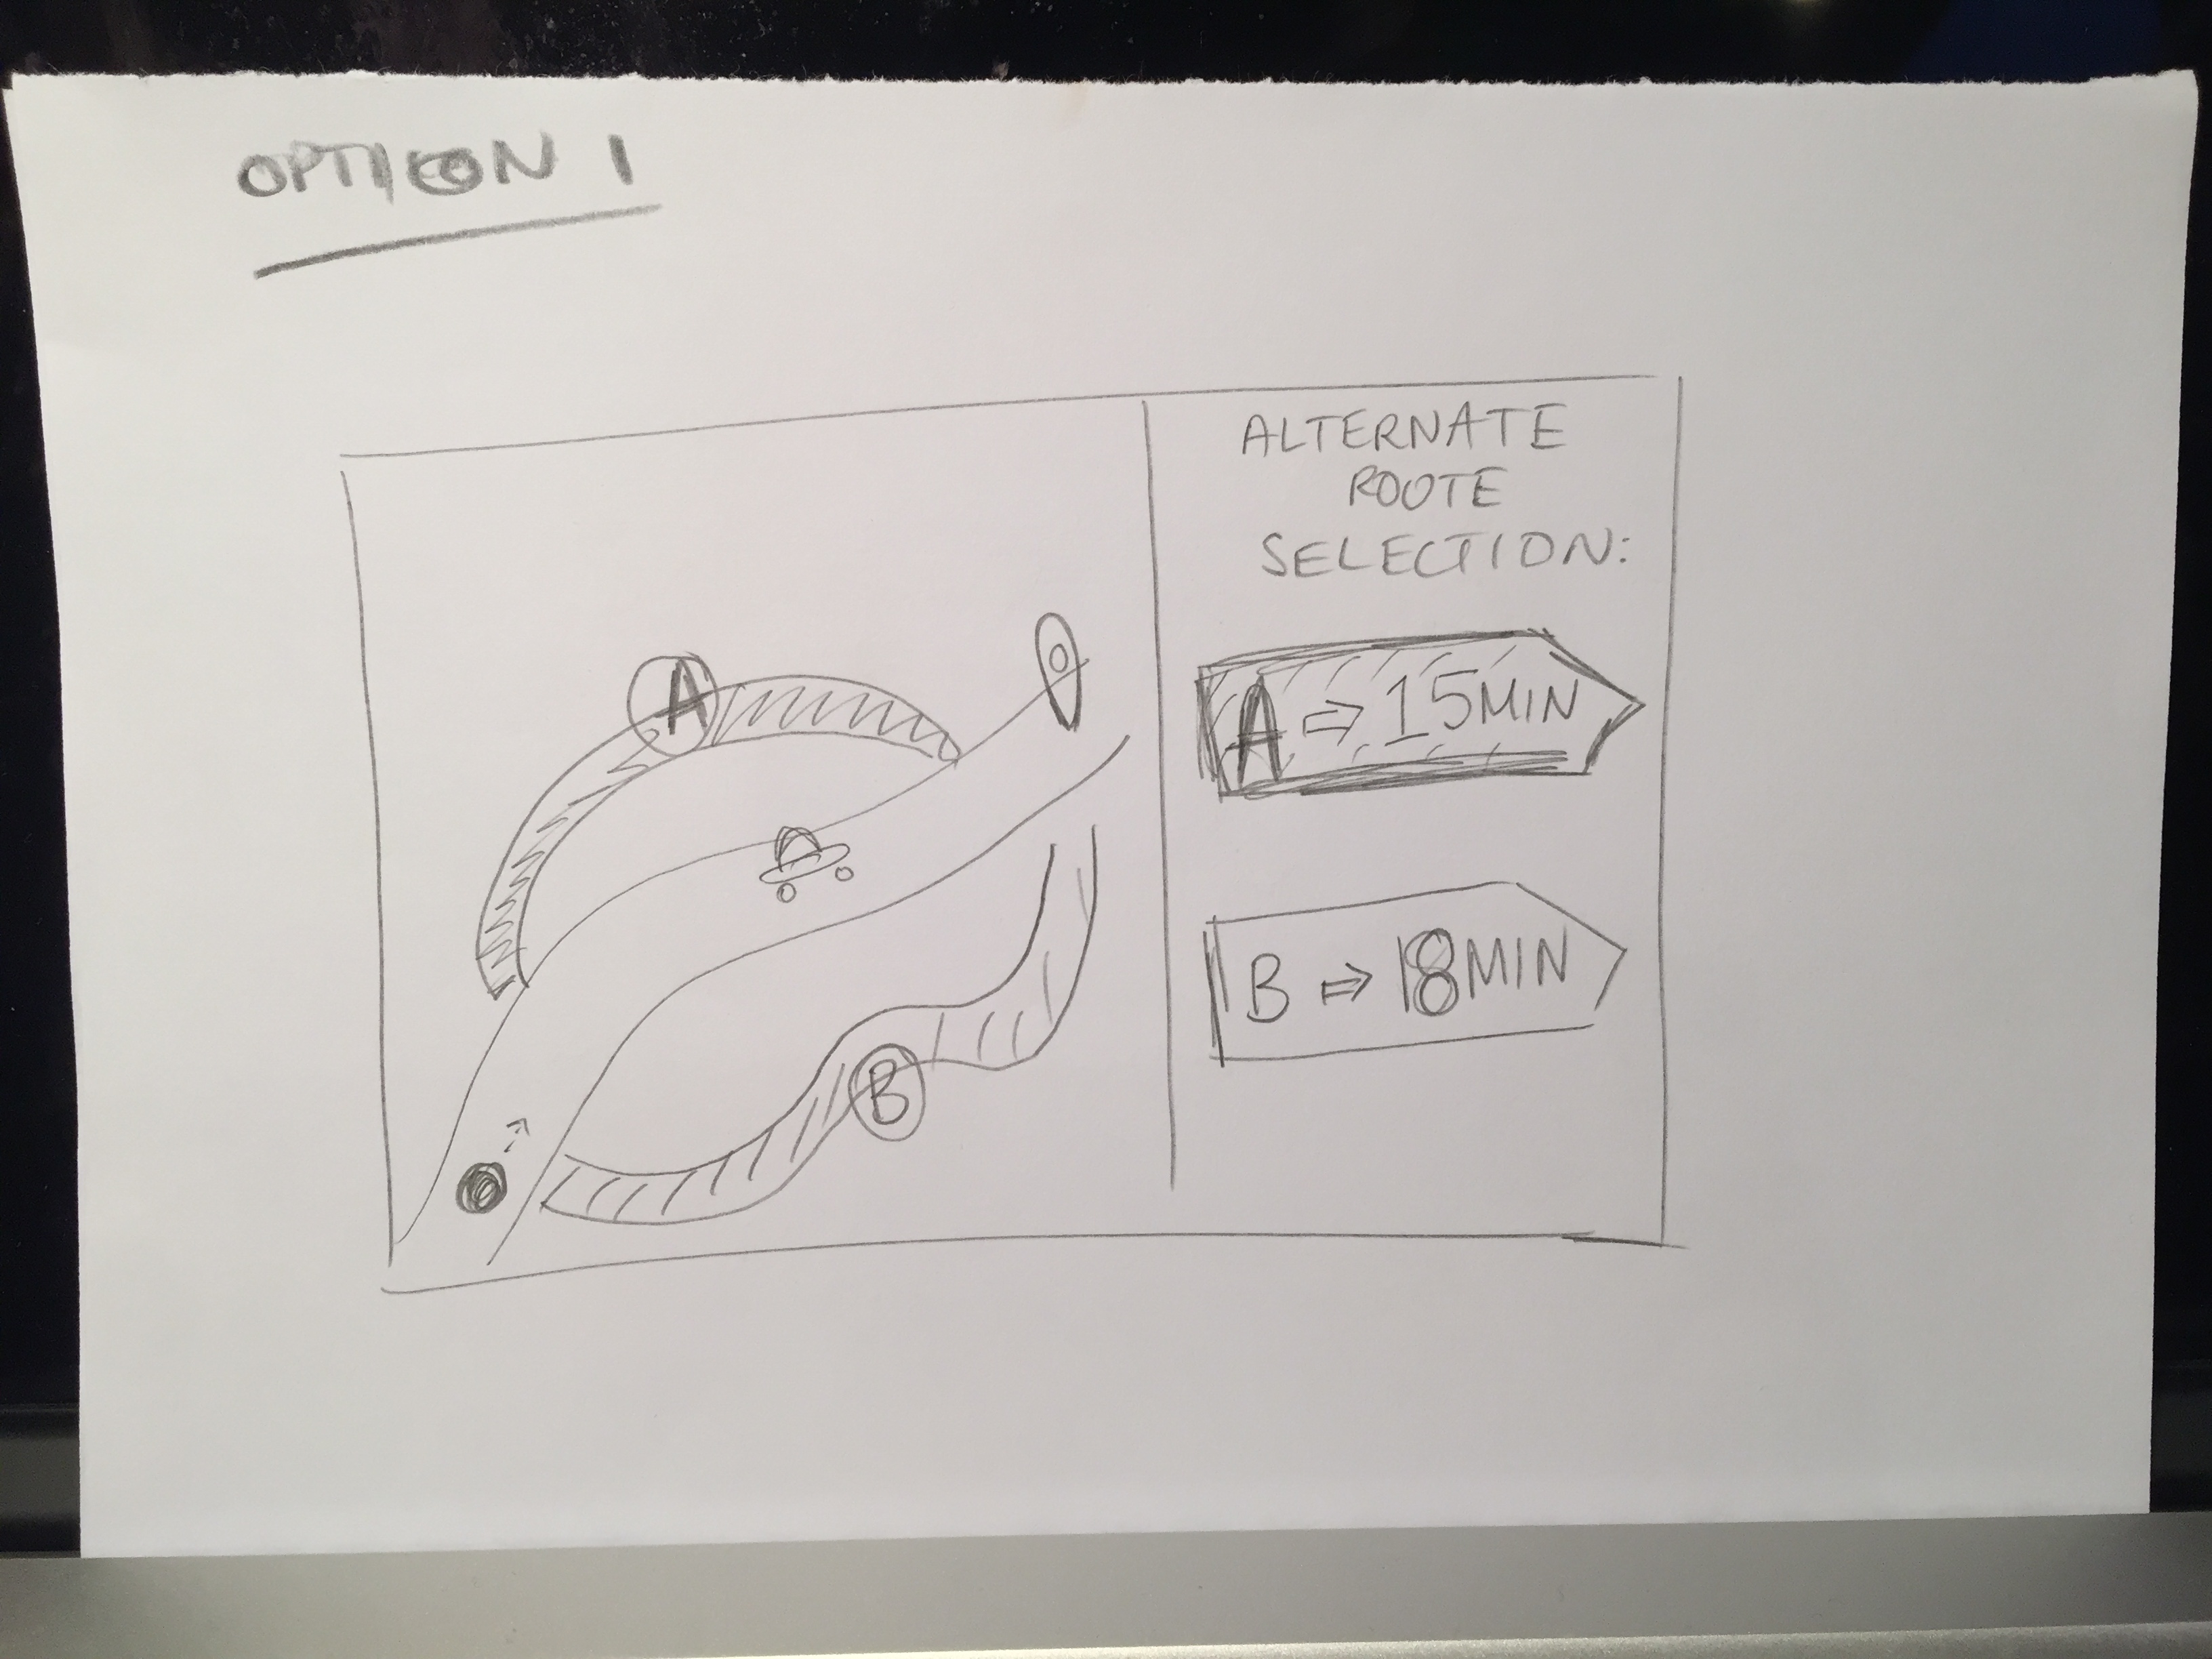 OPTION 1
ALTERNATE
ROUTE
SELECTION:
A
A ⇨ 15 MIN
B ⇨ 18 MIN
B